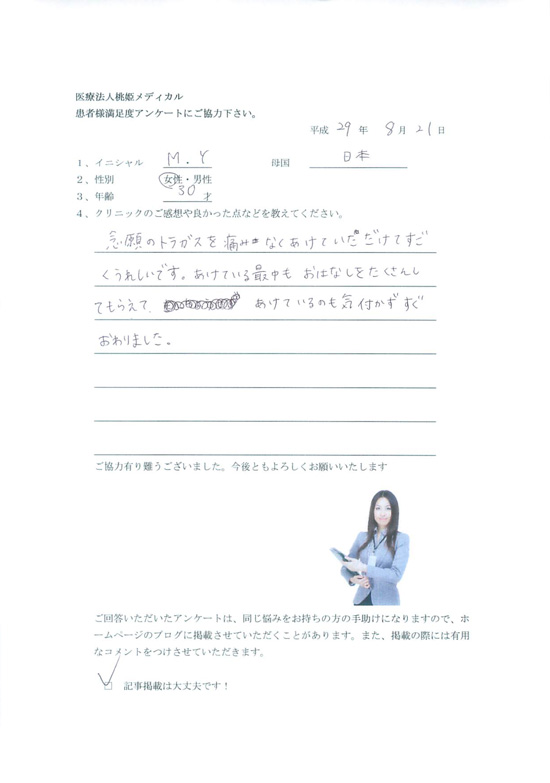 医療法人桃姫メディカル
患者様満足度アンケートにご協力下さい。
平成 29 年 8 月 21 日
1、イニシャル M.Y 母国 日本
2、性別 女性・男性
3、年齢 30 才
4、クリニックのご感想や良かった点などを教えてください。
念願のトラガスを痛みなくあけていただけてすご
くうれしいです。あけている最中も おはなしをたくさんし
てもらえて、 あけているのも気付かずすぐ
おわりました。
ご協力有り難うございました。今後ともよろしくお願いいたします
ご回答いただいたアンケートは、同じ悩みをお持ちの方の手助けになりますので、ホ
ームページのブログに掲載させていただくことがあります。また、掲載の際には有用
なコメントをつけさせていただきます。
□ 記事掲載は大丈夫です！